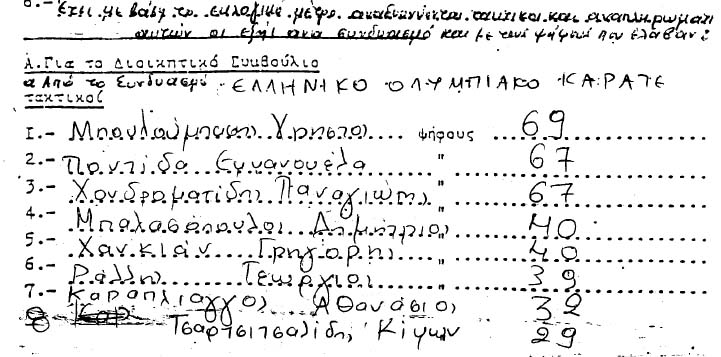 6.- Έτσι με βάση το εκλογικό μέτρο αναδεικνύονται τακτικοί και αναπληρωματι
αυτών οι εξής ανα συνδυασμό και με τους ψήφους που έλαβαν:
Α.Για το Διοικητικό Συμβούλιο
α Από το Συνδυασμό ΕΛΛΗΝΙΚΟ ΟΛΥΜΠΙΑΚΟ ΚΑΡΑΤΕ
τακτικοί
1.- Μπουλούμπαση Χρήστο, ψήφους 69
2.- Ποντίδα Εμμανουέλα " 67
3.- Χονδροματίδης Παναγιώτης " 67
4.- Μπαλασόπουλος Δημήτριος " 40
5.- Χανκιάν Γρηγόρης " 40
6.- Ράλλης Γεώργιος " 39
7.- Καραπλιάγγος Αθανάσιος 32
8 Τσαρτσιτσαλίδης Κίμων 29